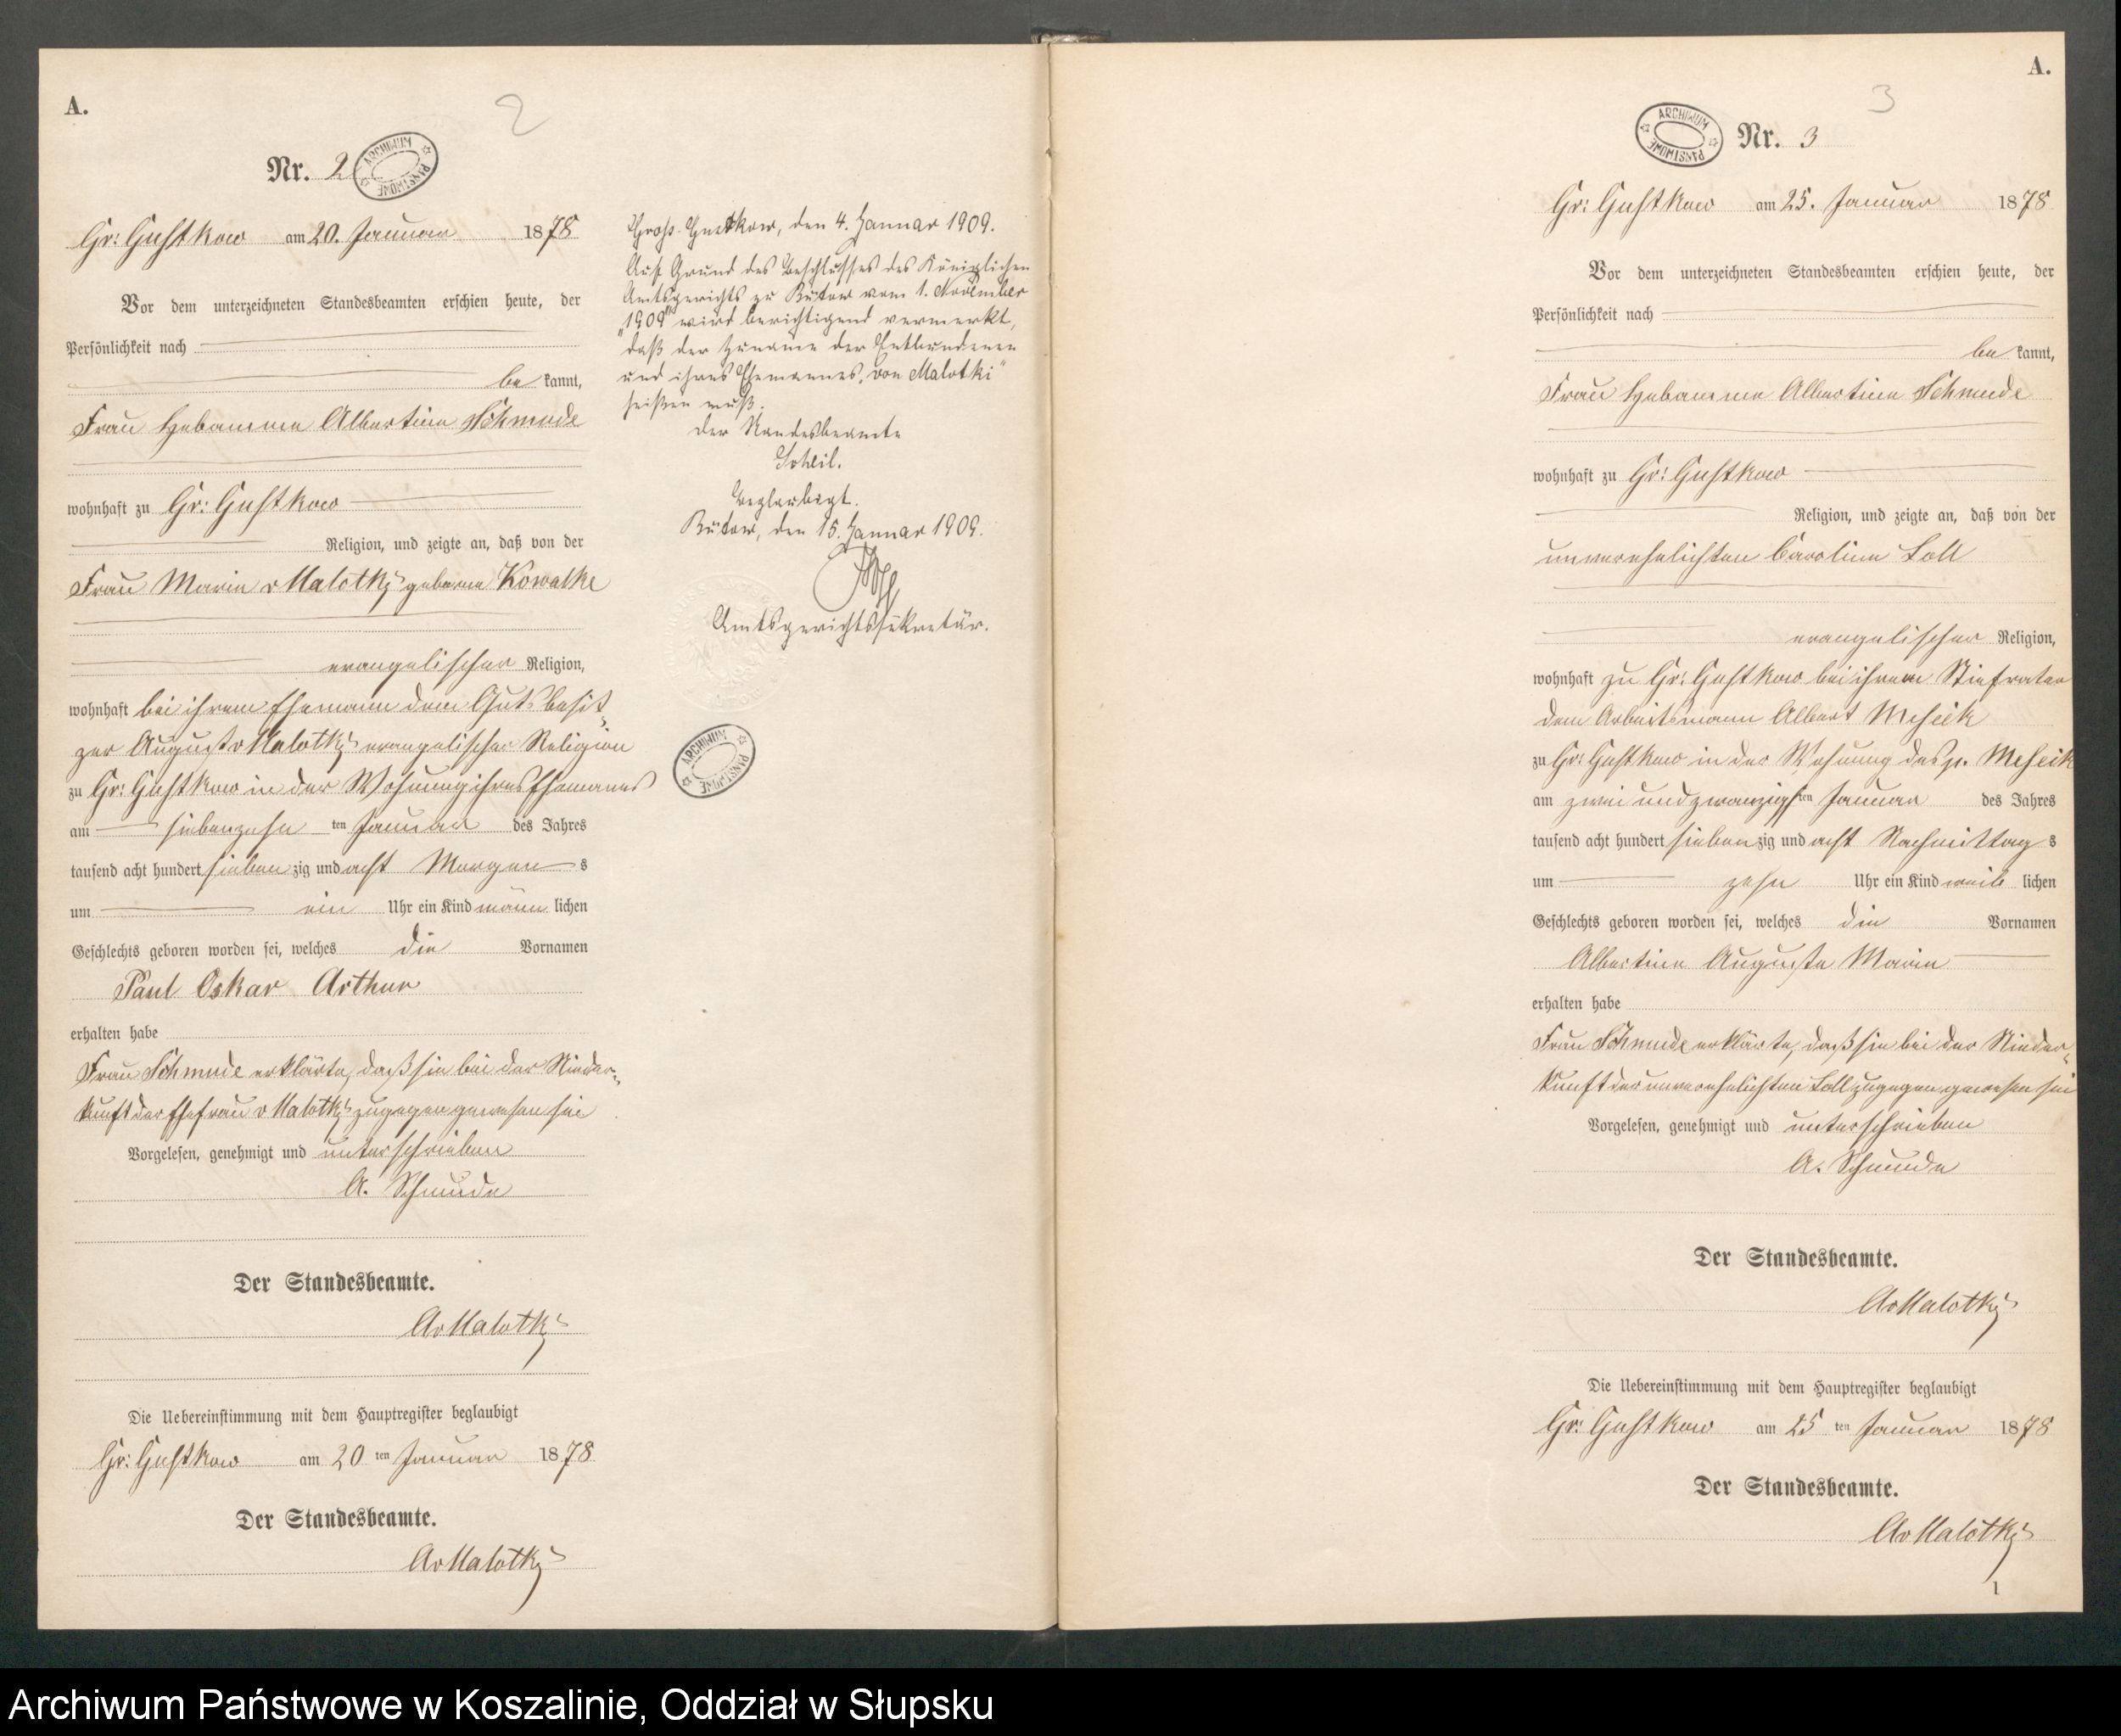 A.
2
Nr. 2
ARCHIWUM PAŃSTWOWE
Gr: Gustkow am 20. Januar 1878
Vor dem unterzeichneten Standesbeamten erschien heute, der
Persönlichkeit nach
be kannt,
Frau Hebamme Albertine Schmude
wohnhaft zu Gr: Gustkow
Religion, und zeigte an, daß von der
Frau Marie v Malotky geborne Kowalke
evangelischer Religion,
wohnhaft bei ihrem Ehemann dem Gutsbesit-
zer August v Malotky evangelischer Religion
zu Gr: Gustkow in der Wohnung ihres Ehemannes
am siebenzehn ten Januar des Jahres
tausend acht hundert sieben zig und acht Morgen s
um ein Uhr ein Kind männ lichen
Geschlechts geboren worden sei, welches die Vornamen
Paul Oskar Arthur
erhalten habe
Frau Schmude erklärte, daß sie bei der Nieder-
kunft der Ehefrau v Malotky zugegen gewesen sei
Vorgelesen, genehmigt und unterschrieben
A. Schmude
Der Standesbeamte.
AvMalotky
Die Uebereinstimmung mit dem Hauptregister beglaubigt
Gr: Gustkow am 20 ten Januar 1878
Der Standesbeamte.
AvMalotky
Gross-Gustkow, den 4. Januar 1909.
Auf Grund des Beschlusses des Königlichen
Amtsgerichts zu Bütow vom 1. November
"1909" wird berichtigend vermerkt,
daß der Zuname der Entbundenen
und ihres Ehemannes "von Malotki"
heißen muß.
Der Standesbeamte
Beglaubigt.
Bütow, den 15. Januar 1909.
Amtsgerichtssekretär.
ARCHIWUM PAŃSTWOWE
A.
3
ARCHIWUM PAŃSTWOWE
Nr. 3
Gr: Gustkow am 25. Januar 1878
Vor dem unterzeichneten Standesbeamten erschien heute, der
Persönlichkeit nach
be kannt,
Frau Hebamme Albertine Schmude
wohnhaft zu Gr: Gustkow
Religion, und zeigte an, daß von der
unverehelichten Caroline Toll
evangelischer Religion,
wohnhaft zu Gr: Gustkow bei ihrem Stiefvater
dem Arbeitsmann Albert
zu Gr: Gustkow in der Wohnung des p.
am zwei und zwanzigsten Januar des Jahres
tausend acht hundert sieben zig und acht Nachmittag s
um zehn Uhr ein Kind weib lichen
Geschlechts geboren worden sei, welches die Vornamen
Albertine Auguste Marie
erhalten habe
Frau Schmude erklärte, daß sie bei der Nieder-
kunft der unverehelichten Toll zugegen gewesen sei
Vorgelesen, genehmigt und unterschrieben
A. Schmude
Der Standesbeamte.
AvMalotky
Die Uebereinstimmung mit dem Hauptregister beglaubigt
Gr: Gustkow am 25 ten Januar 1878
Der Standesbeamte.
AvMalotky
1
Archiwum Państwowe w Koszalinie, Oddział w Słupsku